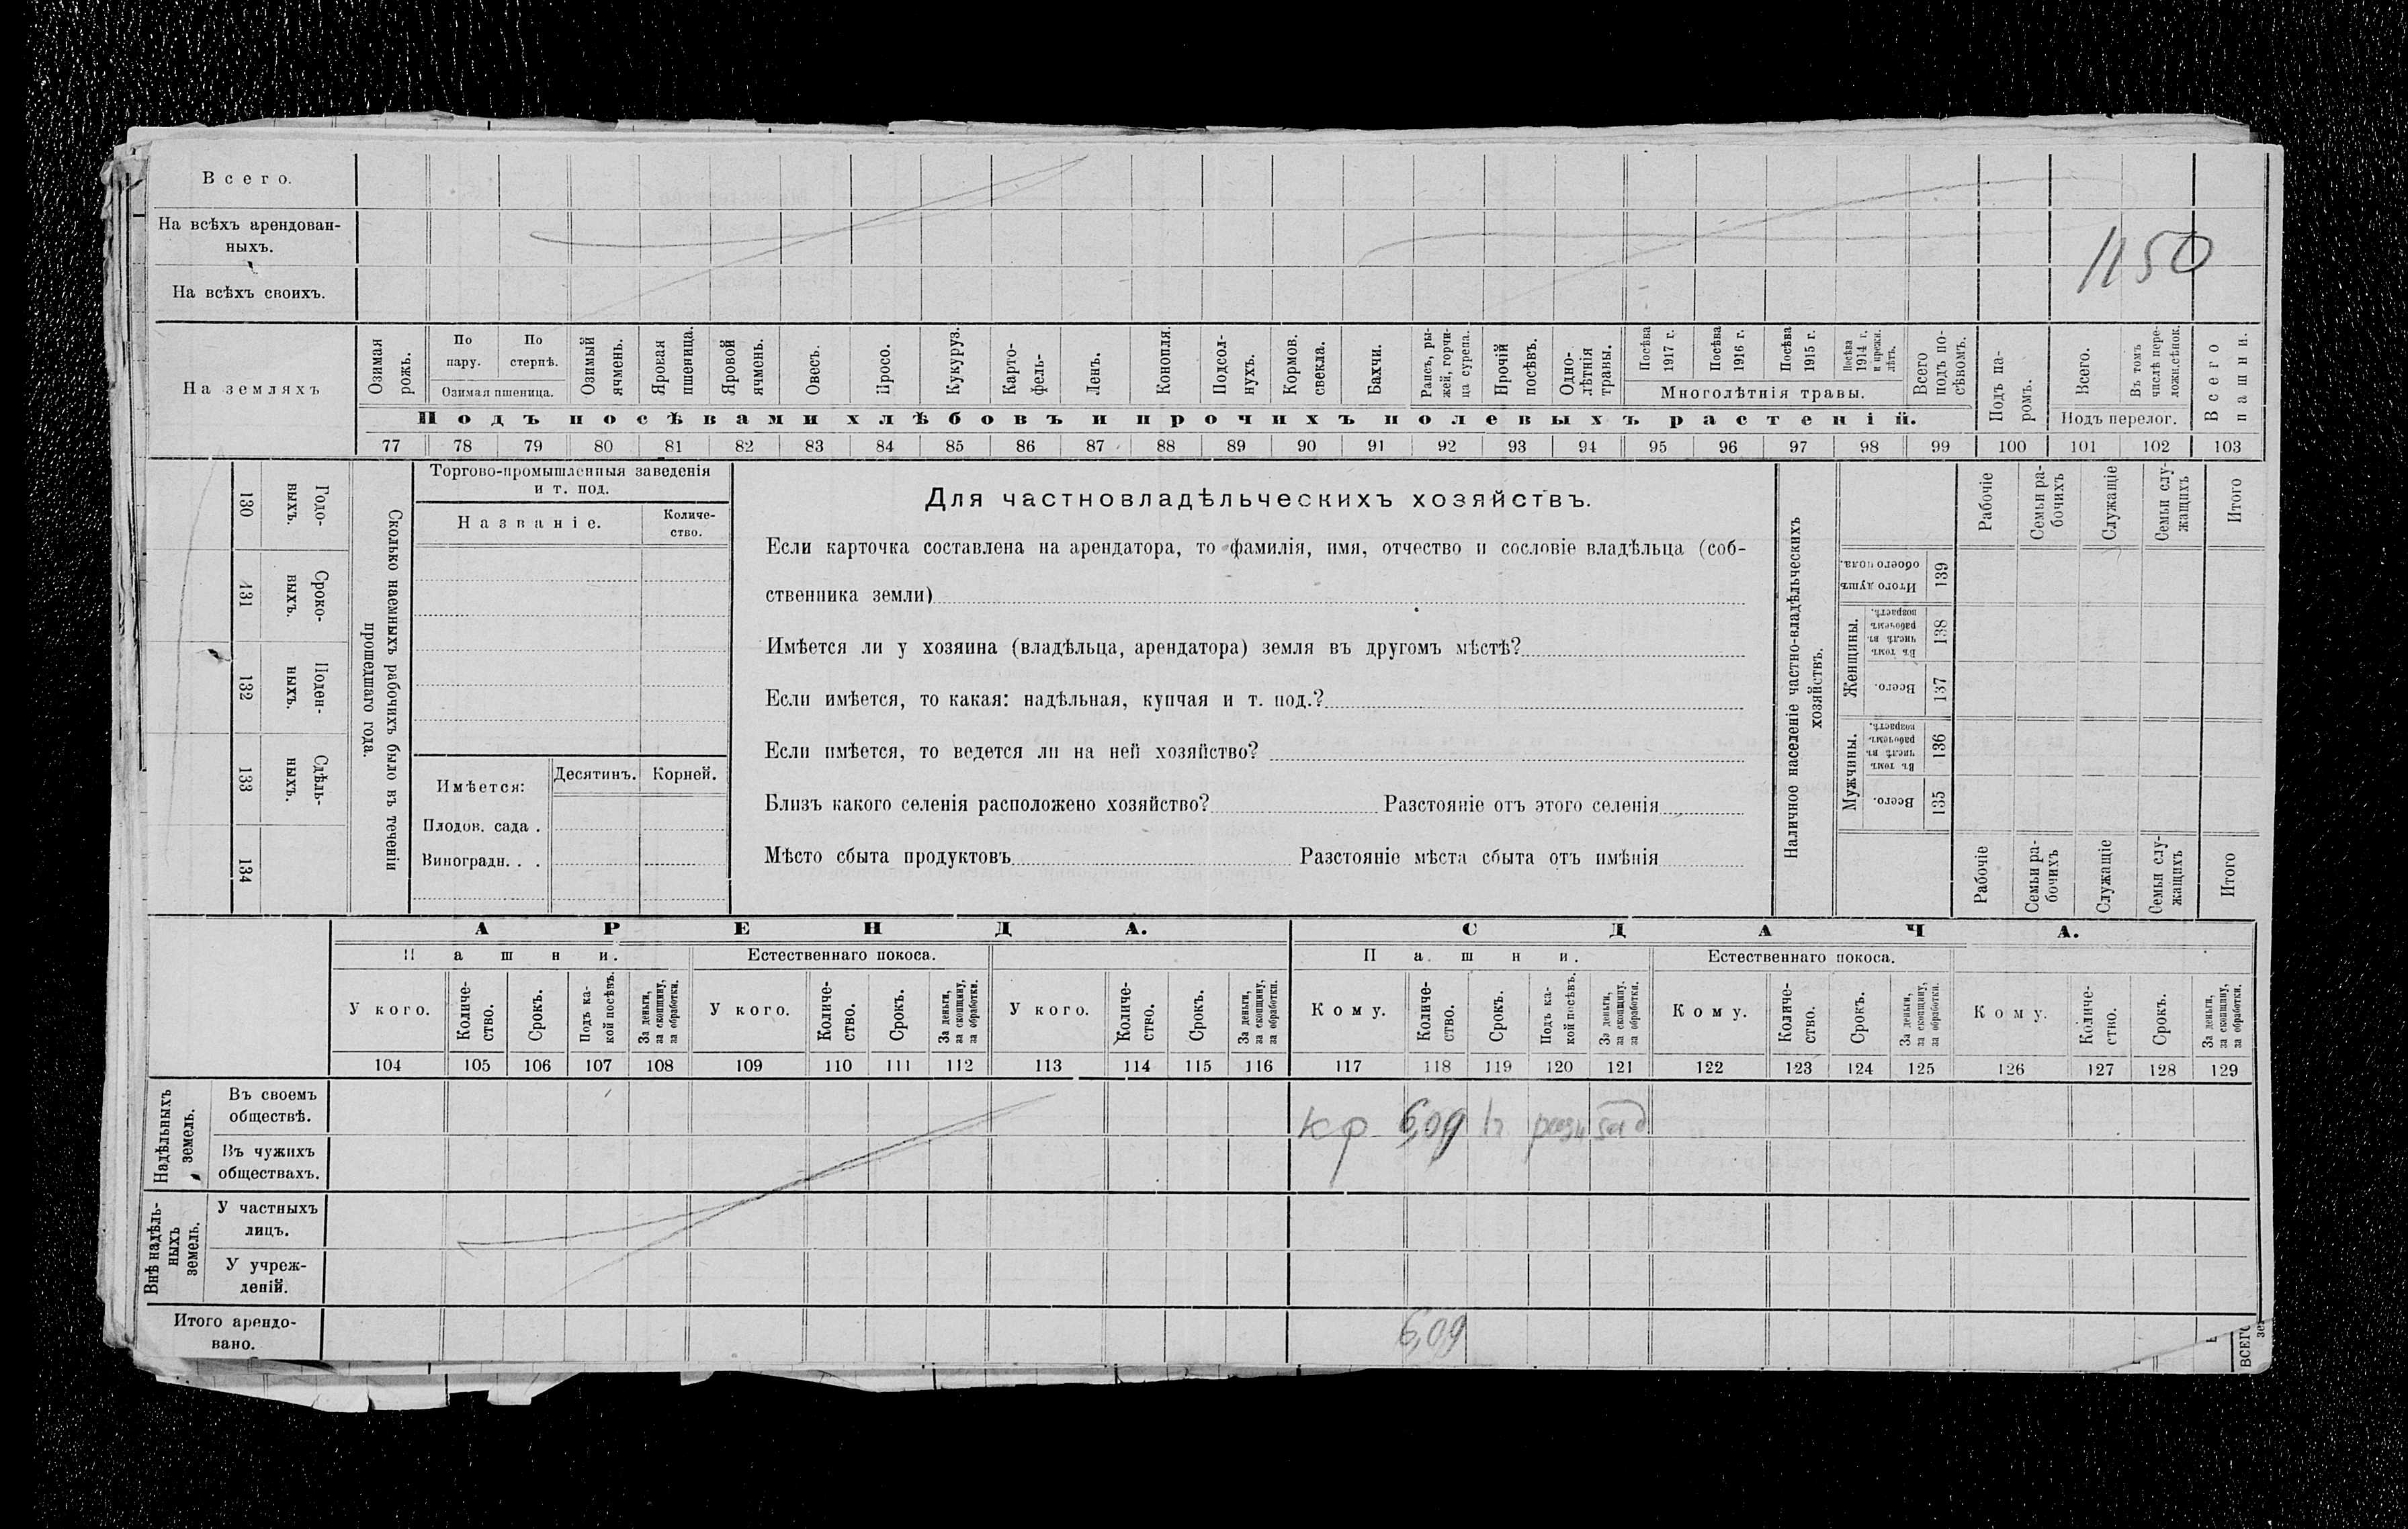 Всего.
На всѣхъ арендован-
ныхъ.
1150
На всѣхъ своихъ.
На земляхъ
Озимая рожь.
По пару.
По стернѣ.
Озимая пшеница.
Озимый ячмень.
Яровая пшеница.
Яровой ячмень.
Овесъ.
Просо.
Кукуруз.
Карто-
фель-
Ленъ.
Конопля.
Подсол-
нухъ.
Кормов. свекла.
Бахчи.
Рапсъ, ры-
жей, горчи-
ца сурепа.
Прочій посѣвъ.
Одно-
лѣтнія травы.
Посѣва 1917 г.
Посѣва 1916 г.
Посѣва 1915 г.
Посѣва 1914 г. и прежн. лѣтъ.
Многолѣтнія травы.
Всего подъ по-
сѣвомъ.
Подъ па-
ромъ.
Всего.
Въ томъ числѣ пере-
ложн.сѣнок.
Подъ перелог.
Всего пашни.
Подъ посѣвами хлѣбовъ и прочихъ полевыхъ растеній.
77 78 79 80 81 82 83 84 85 86 87 88 89 90 91 92 93 94 95 96 97 98 99 100 101 102 103
130 Годо-
выхъ.
131 Сроко-
выхъ.
132 Поден-
ныхъ.
133 Сдѣль-
ныхъ.
134
Сколько наемныхъ рабочихъ было въ теченіи
прошедшаго года.
Торгово-промышленныя заведенія
и т. под.
Названіе.
Количе-
ство.
Имѣется:
Десятинъ.
Корней.
Плодов. сада .
Виноградн. . .
Для частновладѣльческихъ хозяйствъ.
Если карточка составлена на арендатора, то фамилія, имя, отчество и сословіе владѣльца (соб-
ственника земли)
Имѣется ли у хозяина (владѣльца, арендатора) земля въ другомъ мѣстѣ?
Если имѣется, то какая: надѣльная, купчая и т. под.?
Если имѣется, то ведется ли на ней хозяйство?
Близъ какого селенія расположено хозяйство? Разстояніе отъ этого селенія
Мѣсто сбыта продуктовъ Разстояніе мѣста сбыта отъ имѣнія
Наличное населеніе частно-владѣльческихъ
хозяйствъ.
Рабочіе
Семьи ра-
бочихъ
Служащіе
Семьи слу-
жащихъ
Итого
Итого душъ обоего пола. 139
Женщины.
Въ томъ числѣ въ рабочемъ возрастѣ. 138
Всего. 137
Мужчины.
Въ томъ числѣ въ рабочемъ возрастѣ. 136
Всего. 135
Рабочіе
Семьи ра-
бочихъ
Служащіе
Семьи слу-
жащихъ
Итого
АРЕНДА.
СДАЧА.
Пашни.
Естественнаго покоса.
Пашни.
Естественнаго покоса.
У кого.
Количе-
ство.
Срокъ.
Подъ ка-
кой посѣвъ.
За деньги, за скопщину, за обработки.
У кого.
Количе-
ство.
Срокъ.
За деньги, за скопщину, за обработки.
У кого.
Количе-
ство.
Срокъ.
За деньги, за скопщину, за обработки.
Кому.
Количе-
ство.
Срокъ.
Подъ ка-
кой посѣвъ.
За деньги, за скопщину, за обработки.
Кому.
Количе-
ство.
Срокъ.
За деньги, за скопщину, за обработки.
Кому.
Количе-
ство.
Срокъ.
За деньги, за скопщину, за обработки.
104 105 106 107 108 109 110 111 112 113 114 115 116 117 118 119 120 121 122 123 124 125 126 127 128 129
Надѣльныхъ земель.
Въ своемъ
обществѣ.
кр 6,09 1г
Въ чужихъ
обществахъ.
Внѣ надѣль-
ныхъ земель.
У частныхъ
лицъ.
У учреж-
деній.
Итого арендо-
вано.
6,09
ВСЕГО